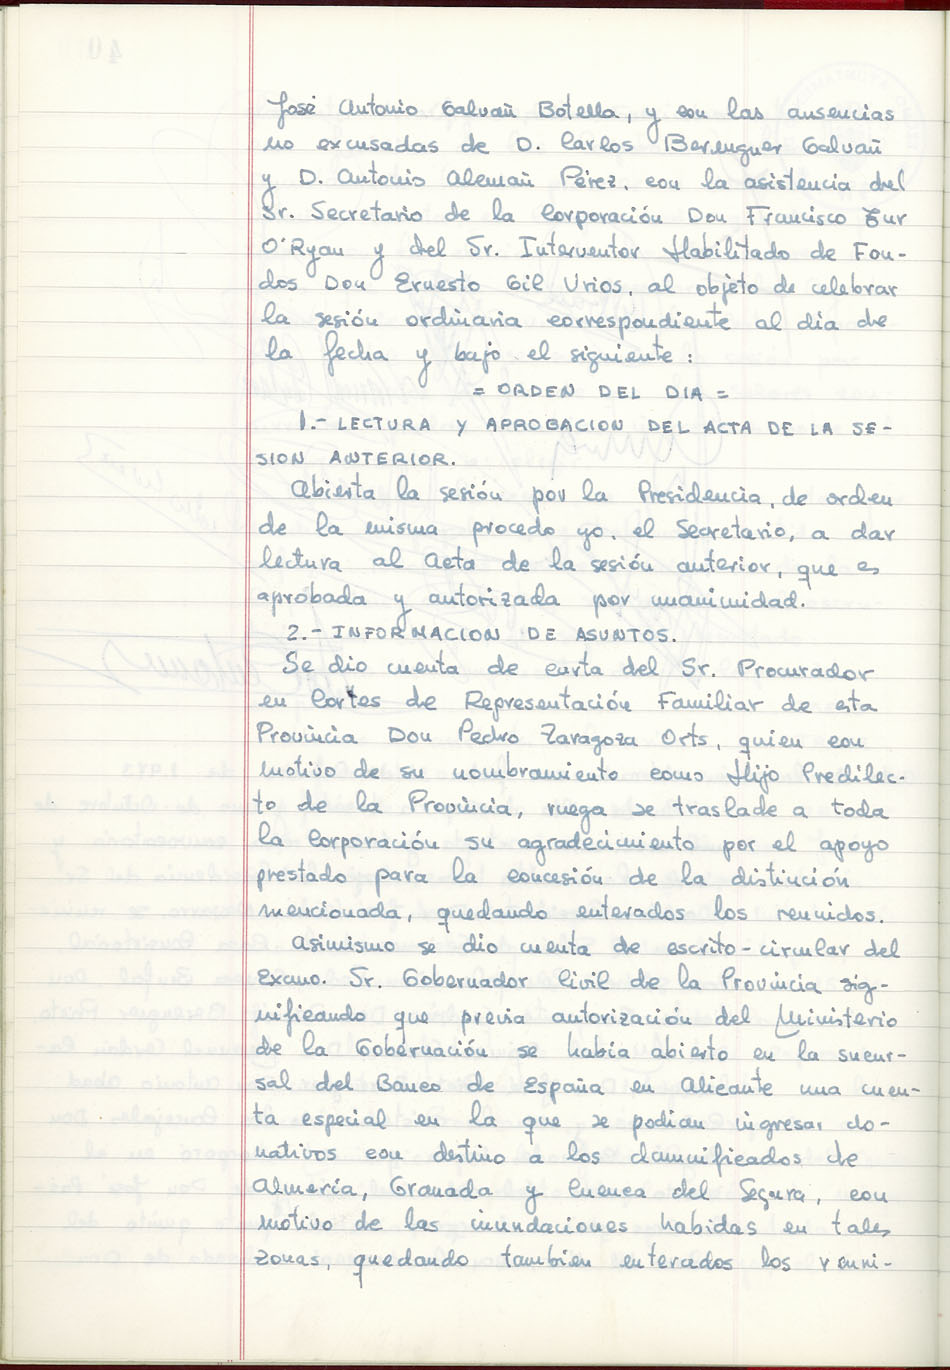 José Antonio Galvañ Botella, y con las ausencias
no excusadas de D. Carlos Berenguer Galvañ
y D. Antonio Alemañ Pérez, con la asistencia del
Sr. Secretario de la Corporación Don Francisco Zur
O'Ryan y del Sr. Interventor Habilitado de Fon-
dos Don Ernesto Gil Urios, al objeto de celebrar
la sesión ordinaria correspondiente al dia de
la fecha y bajo el siguiente:
= ORDEN DEL DIA =
1.- LECTURA Y APROBACION DEL ACTA DE LA SE-
SION ANTERIOR.
Abierta la sesión por la Presidencia, de orden
de la misma procedo yo, el Secretario, a dar
lectura al Acta de la sesión anterior, que es
aprobada y autorizada por unanimidad.
2.- INFORMACION DE ASUNTOS.
Se dio cuenta de carta del Sr. Procurador
en Cortes de Representación Familiar de esta
Provincia Don Pedro Zaragoza Orts, quien con
motivo de su nombramiento como Hijo Predilec-
to de la Provincia, ruega se traslade a toda
la Corporación su agradecimiento por el apoyo
prestado para la concesión de la distinción
mencionada, quedando enterados los reunidos.
Asimismo se dio cuenta de escrito-circular del
Excmo. Sr. Gobernador Civil de la Provincia sig-
nificando que previa autorización del Ministerio
de la Gobernación se había abierto en la sucur-
sal del Banco de España en Alicante una cuen-
ta especial en la que se podian ingresar do-
nativos con destino a los damnificados de
Almería, Granada y Cuenca del Segura, con
motivo de las inundaciones habidas en tales
zonas, quedando tambien enterados los reuni-